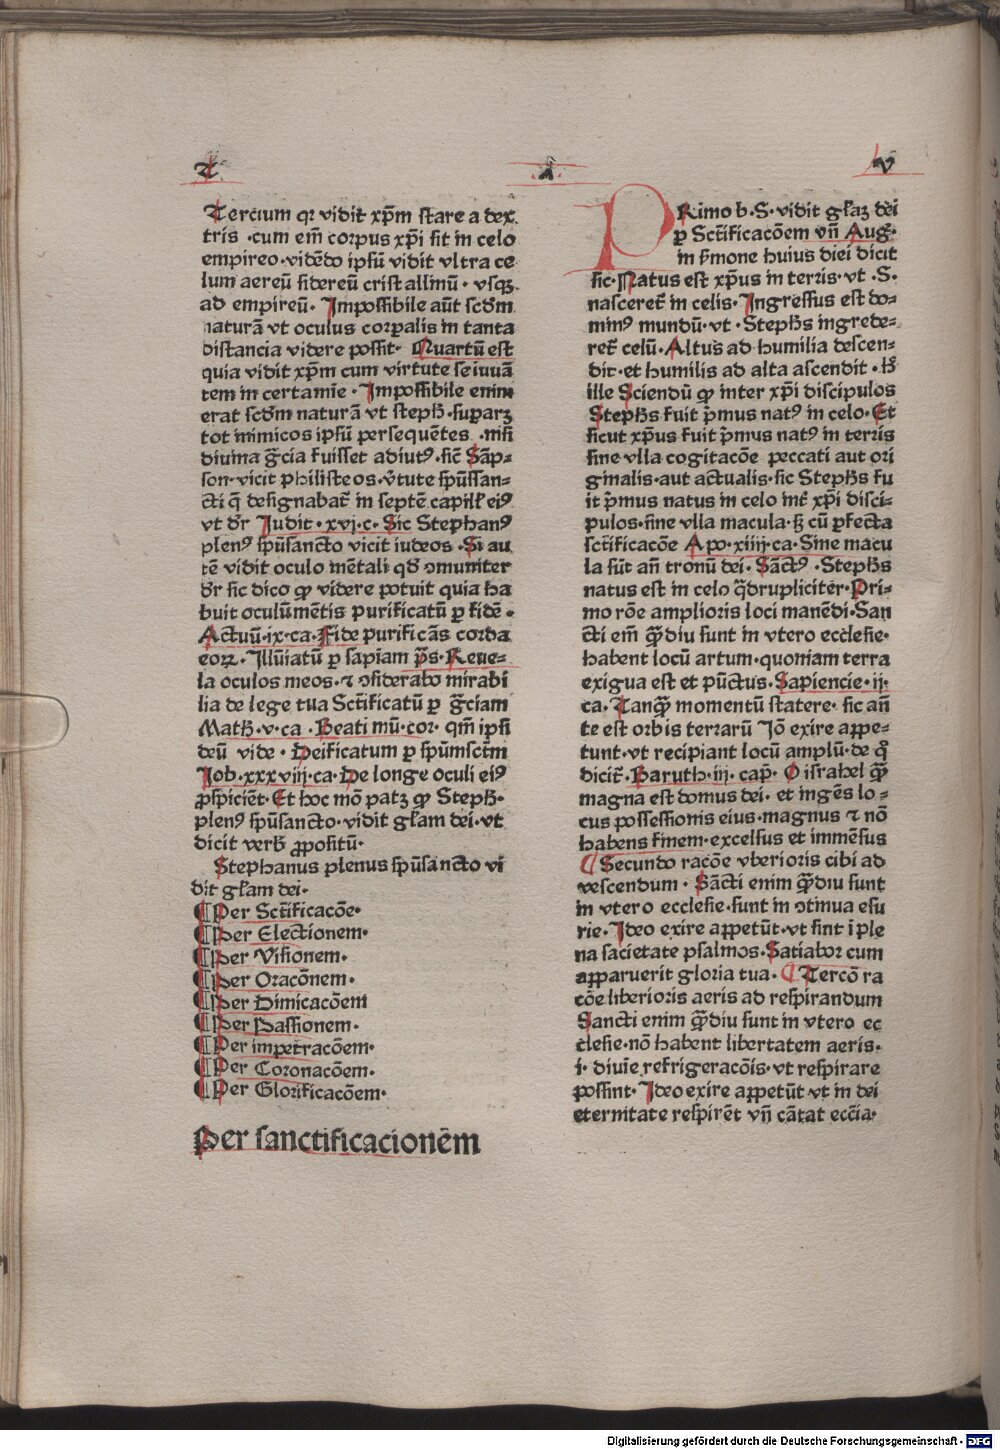 T. A. V
Tercium qꝛ vidit xp̄m ſtare a dex
tris ·cum em̄ corpus xp̄i ſit in celo
empireo·vidēdo ipſū vidit vltra ce
lum aereū ſidereū criſtallinū· vſqꝫ
ad empireū· Impoſſibile aūt ſcd̄m
naturā vt oculus corꝑalis in tanta
diſtancia videre poſſit· Quartū eſt
quia vidit xp̄m cum virtute ſe iuuā
tem in certamīe · Impoſſibile enim
erat ſcd̄m naturā vt ſteph̄·ſuꝑarꝫ
tot inimicos ipſū perſequētes ·niſi
diuina gr̄cia fuiſſet adiutꝰ·ſic̄ Sāp⸗
ſon·vicit philiſteos·v̄tute ſpūſſan⸗
cti q̄ deſignabat̄ in ſeptē capill̄ eiꝰ
vt dr̄ Judit·xvj·c· Sic Stephanꝰ
plenꝰ ſpūſancto vicit iudeos ·Si au
tē vidit oculo mētali qd̄ ꝯmuniter
dr̄ ſic dico ꝙ videre potuit quia ha
buit oculū mētis purificatū ꝑ fidē·
Actuū·ix·ca·Fide purificās corda
eoꝝ· Illūiatū ꝑ ſapiam p̄s·Reue⸗
la oculos meos·⁊ ꝯſiderabo mirabi
lia de lege tua Sct̄ificatū ꝑ gr̄ciam
Math̄·v·ca ·Beati mū·cor· qm̄ ipſi
deū vide · Deificatum ꝑ ſpūmſctm̄
Job·xxxviij·ca·De longe oculi eiꝰ
ꝓſpiciēt·Et hoc mō patꝫ ꝙ Steph̄·
plenꝰ ſpūſancto·vidit gl̄am dei·vt
dicit verb̄ ꝓpoſitū·
Stephanus plenus ſpūſancto vi
dit gl̄am dei·
¶ Per Sct̄ificacōe·
¶ Per Electionem·
¶ Per Viſionem·
¶ Per Oracōnem·
¶ Per Dimicacōem
¶ Per Paſſionem·
¶ Per impetracōem·
¶ Per Coronacōem·
¶ Per Glorificacōem·
Per ſanctificacionēm
PRimo b·S·vidit gl̄aꝫ dei
ꝑ Sct̄ificacōem vn̄ Aug·
in ſ̄mone huius diei dicit
ſic·Natus eſt xp̄us in terris·vt ·S·
naſceret̄ in celis·Ingreſſus eſt do⸗
minꝰ mundū·vt ·Steph̄s ingrede⸗
ret̄ celū·Altus ad humilia deſcen⸗
dit·et humilis ad alta aſcendit·h̄
ille Sciendū ꝙ inter xp̄i diſcipulos
Steph̄s fuit p̄mus natꝰ in celo·Et
ſicut xp̄us fuit p̄mus natꝰ in terris
ſine vlla cogitacōe peccati aut ori
ginalis·aut actualis·ſic Steph̄s fu
it p̄mus natus in celo int̄ xp̄i diſci⸗
pulos·ſine vlla macula·ſꝫ cū ꝑfecta
ſct̄ificacōe Apo·xiiij·ca·Sine macu
la ſūt an̄ tronū dei·Sāctꝰ ·Steph̄s
natus eſt in celo q̄drupliciter·Pri⸗
mo rōe amplioris loci manēdi·San
cti em̄ qͣ̄diu ſunt in vtero eccleſie·
habent locū artum·quoniam terra
exigua eſt et pūctus·Sapiencie·ij·
ca·Tanqͣ̄ momentū ſtatere· ſic an̄
te eſt orbis terrarū Jō exire appe⸗
tunt·vt recipiant locū amplū·de qͦ
dicit̄·Baruth·iij·cap̄· O iſrahel qͣ̄
magna eſt domus dei· et ingēs lo⸗
cus poſſeſſionis eius·magnus ⁊ nō
habens finem·excelſus et immēſus
¶ Secundo racōe vberioris cibi ad
veſcendum · Sācti enim qͣ̄diu ſunt
in vtero eccleſie·ſunt in ꝯtinua eſu
rie·Ideo exire appetūt·vt ſint ī ple
na ſacietate pſalmos·Satiabor cum
apparuerit gloria tua· ¶ Tercō ra
cōe liberioris aeris ad reſpirandum
Sancti enim qͣ̄diu ſunt in vtero ec
cleſie·nō habent libertatem aeris·
i· diuīe refrigeracōis·vt reſpirare
poſſint·Ideo exire appetūt vt in dei
eternitate reſpirēt vn̄ cātat ecc̄ia·
Digitalisierung gefördert durch die Deutsche Forschungsgemeinschaft - DFG